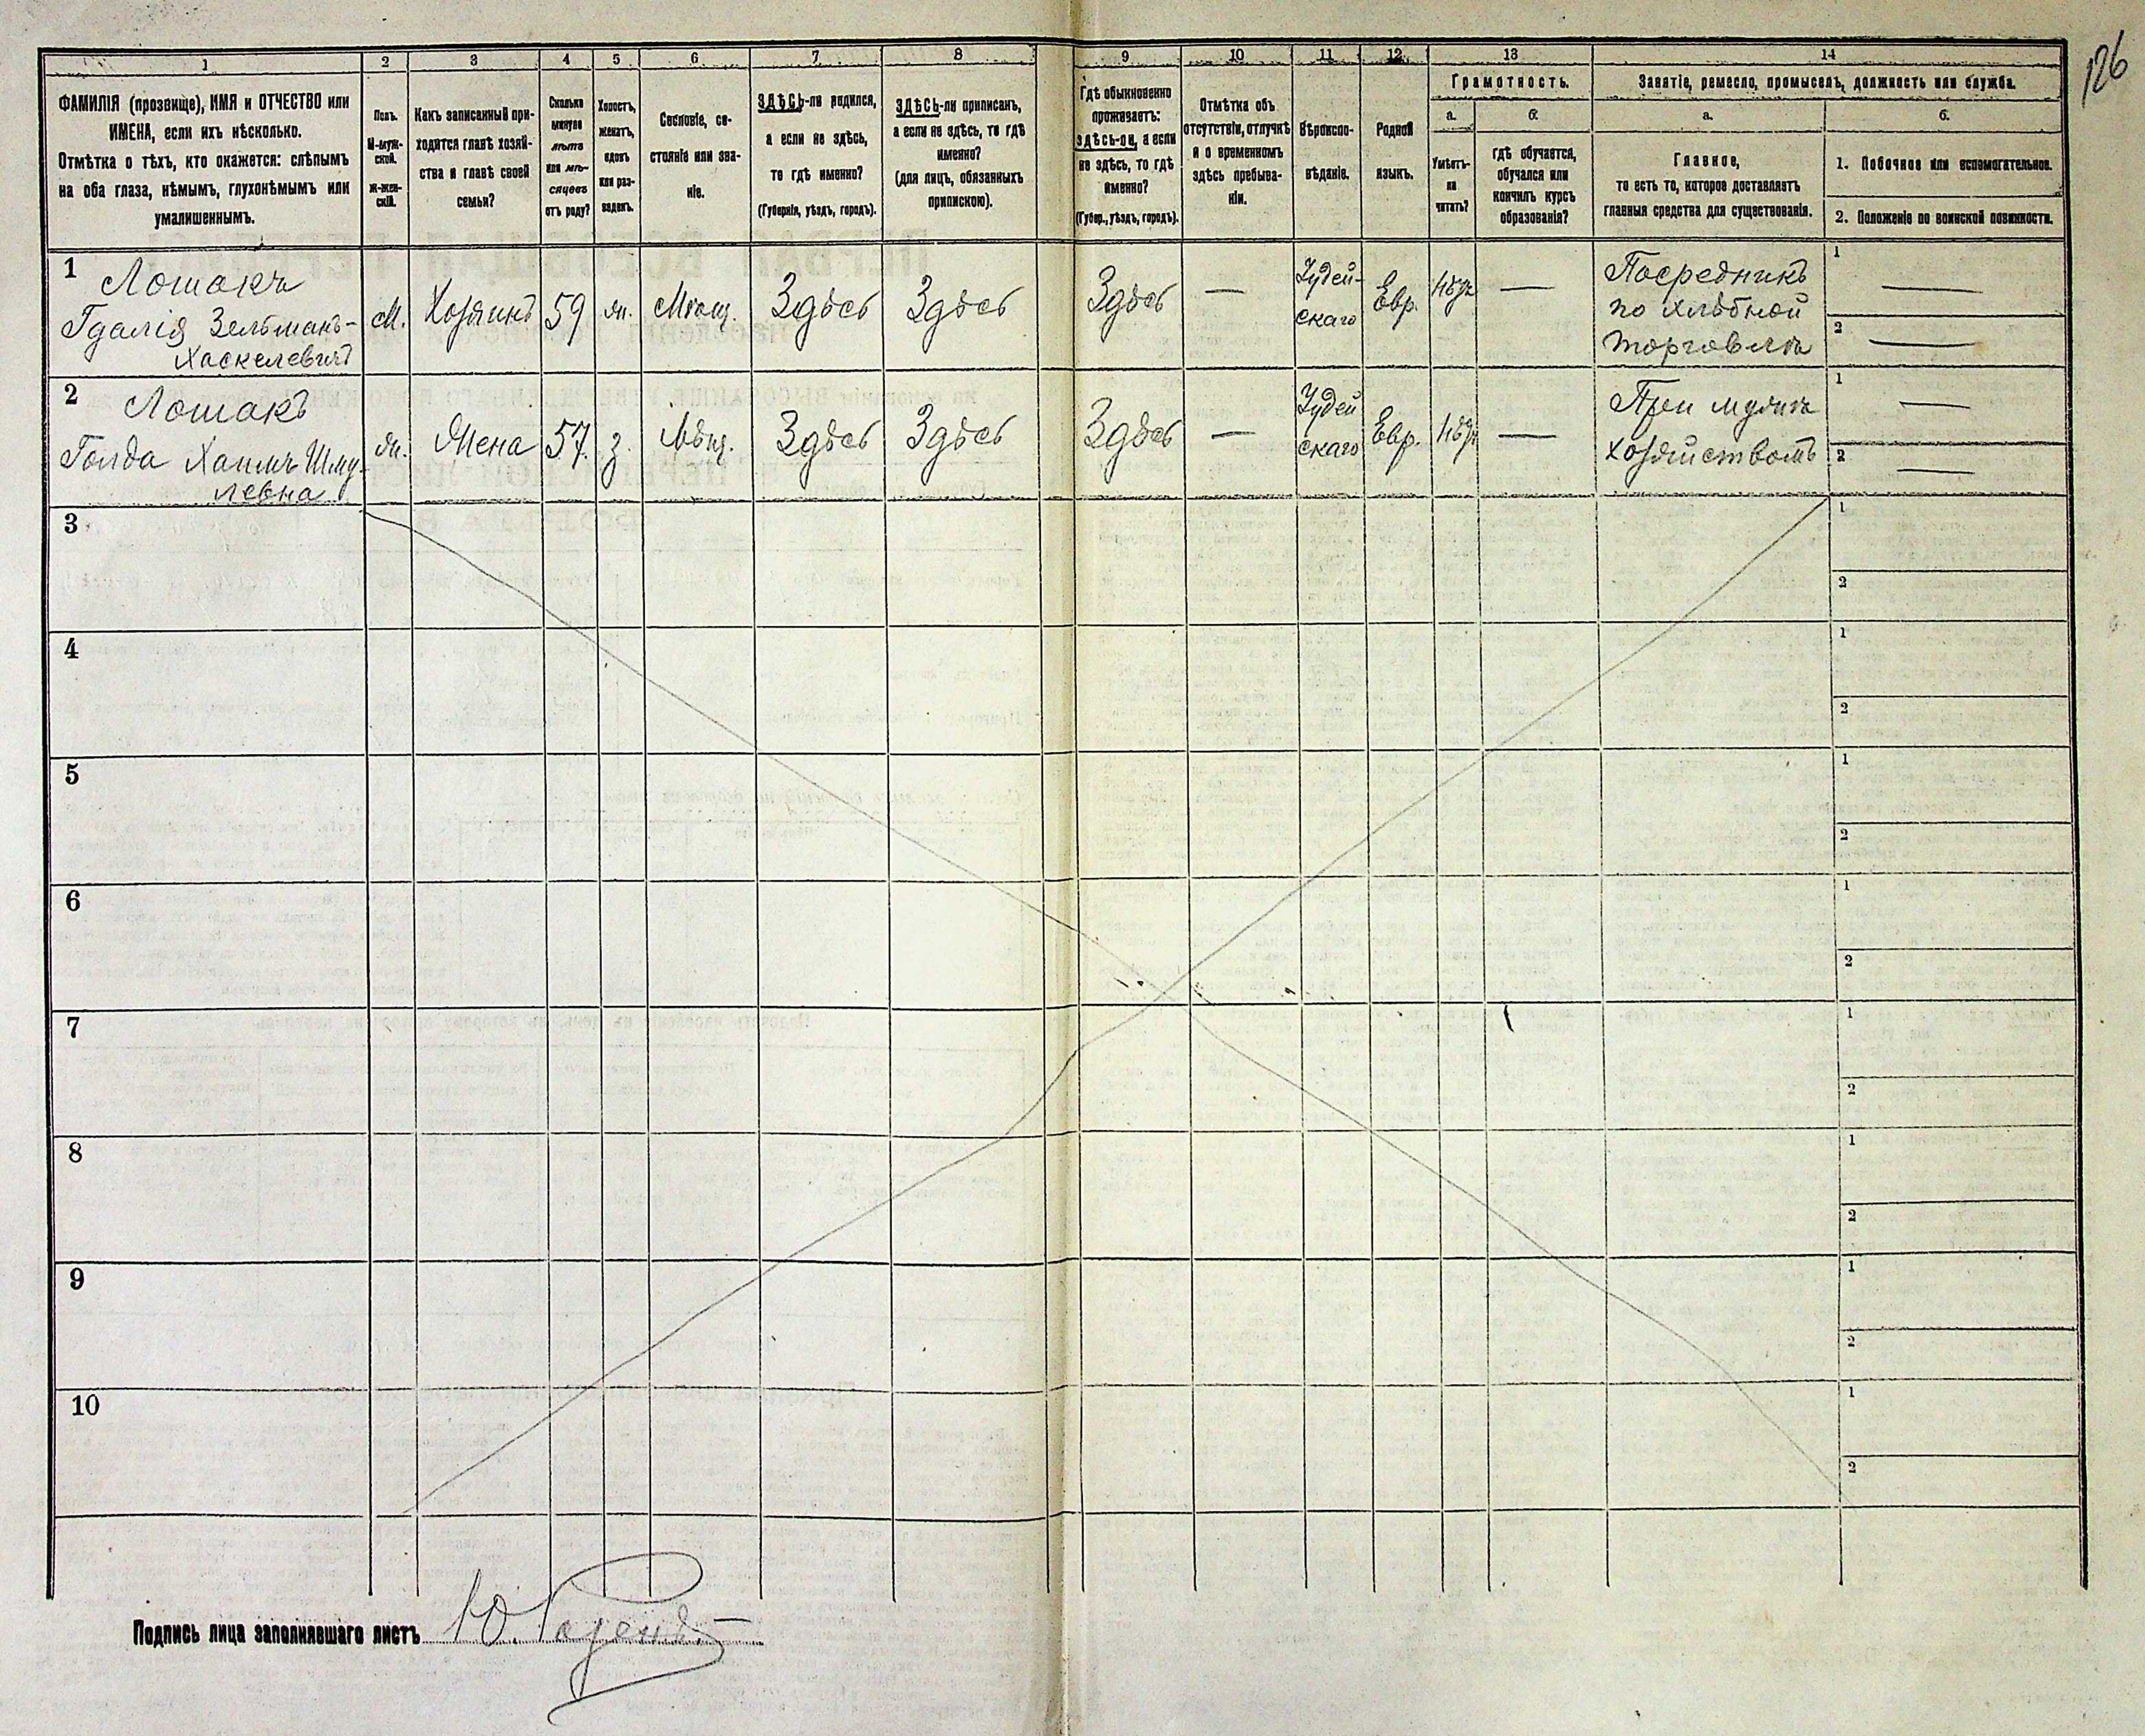 126
1
2
3
4
5
6
7
8
9
10
11
12.
13
14
ФАМИЛІЯ (прозвище), ИМЯ и ОТЧЕСТВО или
ИМЕНА, если ихъ нѣсколько.
Отмѣтка о тѣхъ, кто окажется: слѣпымъ
на оба глаза, нѣмымъ, глухонѣмымъ или
умалишеннымъ.
Полъ.
М-муж-
ской.
ж-жен-
скій.
Какъ записанный при-
ходится главѣ хозяй-
ства и главѣ своей
семьи?
Сколько
минуло
лѣтъ
или мѣ-
сяцевъ
отъ роду?
Холостъ,
женатъ,
вдовъ
или раз-
веденъ.
Сословіе, со-
стояніе или зва-
ніе.
ЗДѢСЬ-ли родился,
а если не здѣсь,
то гдѣ именно?
(Губернія, уѣздъ, городъ).
ЗДѢСЬ-ли приписанъ,
а если не здѣсь, то гдѣ
именно?
(для лицъ, обязанныхъ
припискою).
Гдѣ обыкновенно
проживаетъ:
здѣсь-ли, а если
не здѣсь, то гдѣ
именно?
(Губер., уѣздъ, городъ).
Отмѣтка объ
отсутствіи, отлучкѣ
и о временномъ
здѣсь пребыва-
ніи.
Вѣроиспо-
вѣданіе.
Родной
языкъ.
Грамотность.
а.
б.
Умѣетъ-
ли
читать?
гдѣ обучается,
обучался или
кончилъ курсъ
образованія?
Занятіе, ремесло, промыселъ, должность или служба.
а.
б.
Главное,
то есть то, которое доставляетъ
главныя средства для существованія.
1. Побочное или вспомогательное.
2. Положеніе по воинской повинности.
1
Лошакъ
Гдалія Зельманъ-
Хаскелевичъ
М.
Хозяинъ
59
ж.
Мѣщ.
Здѣсь
Здѣсь
Здѣсь
—
Іудей-
скаго
Евр.
нѣтъ
—
Посредникъ
по хлѣбной
торговлѣ
1 —
2 —
2
Лошакъ
Голда Хаимъ Шму-
левна
ж.
Жена
57.
з.
Мѣщ.
Здѣсь
Здѣсь
Здѣсь
—
Іудей
скаго
Евр.
нѣтъ
—
При мужѣ
хозяйствомъ
1 —
2 —
3
1
2
4
1
2
5
1
2
6
1
2
7
1
2
8
1
2
9
1
2
10
1
2
Подпись лица заполнявшаго листъ